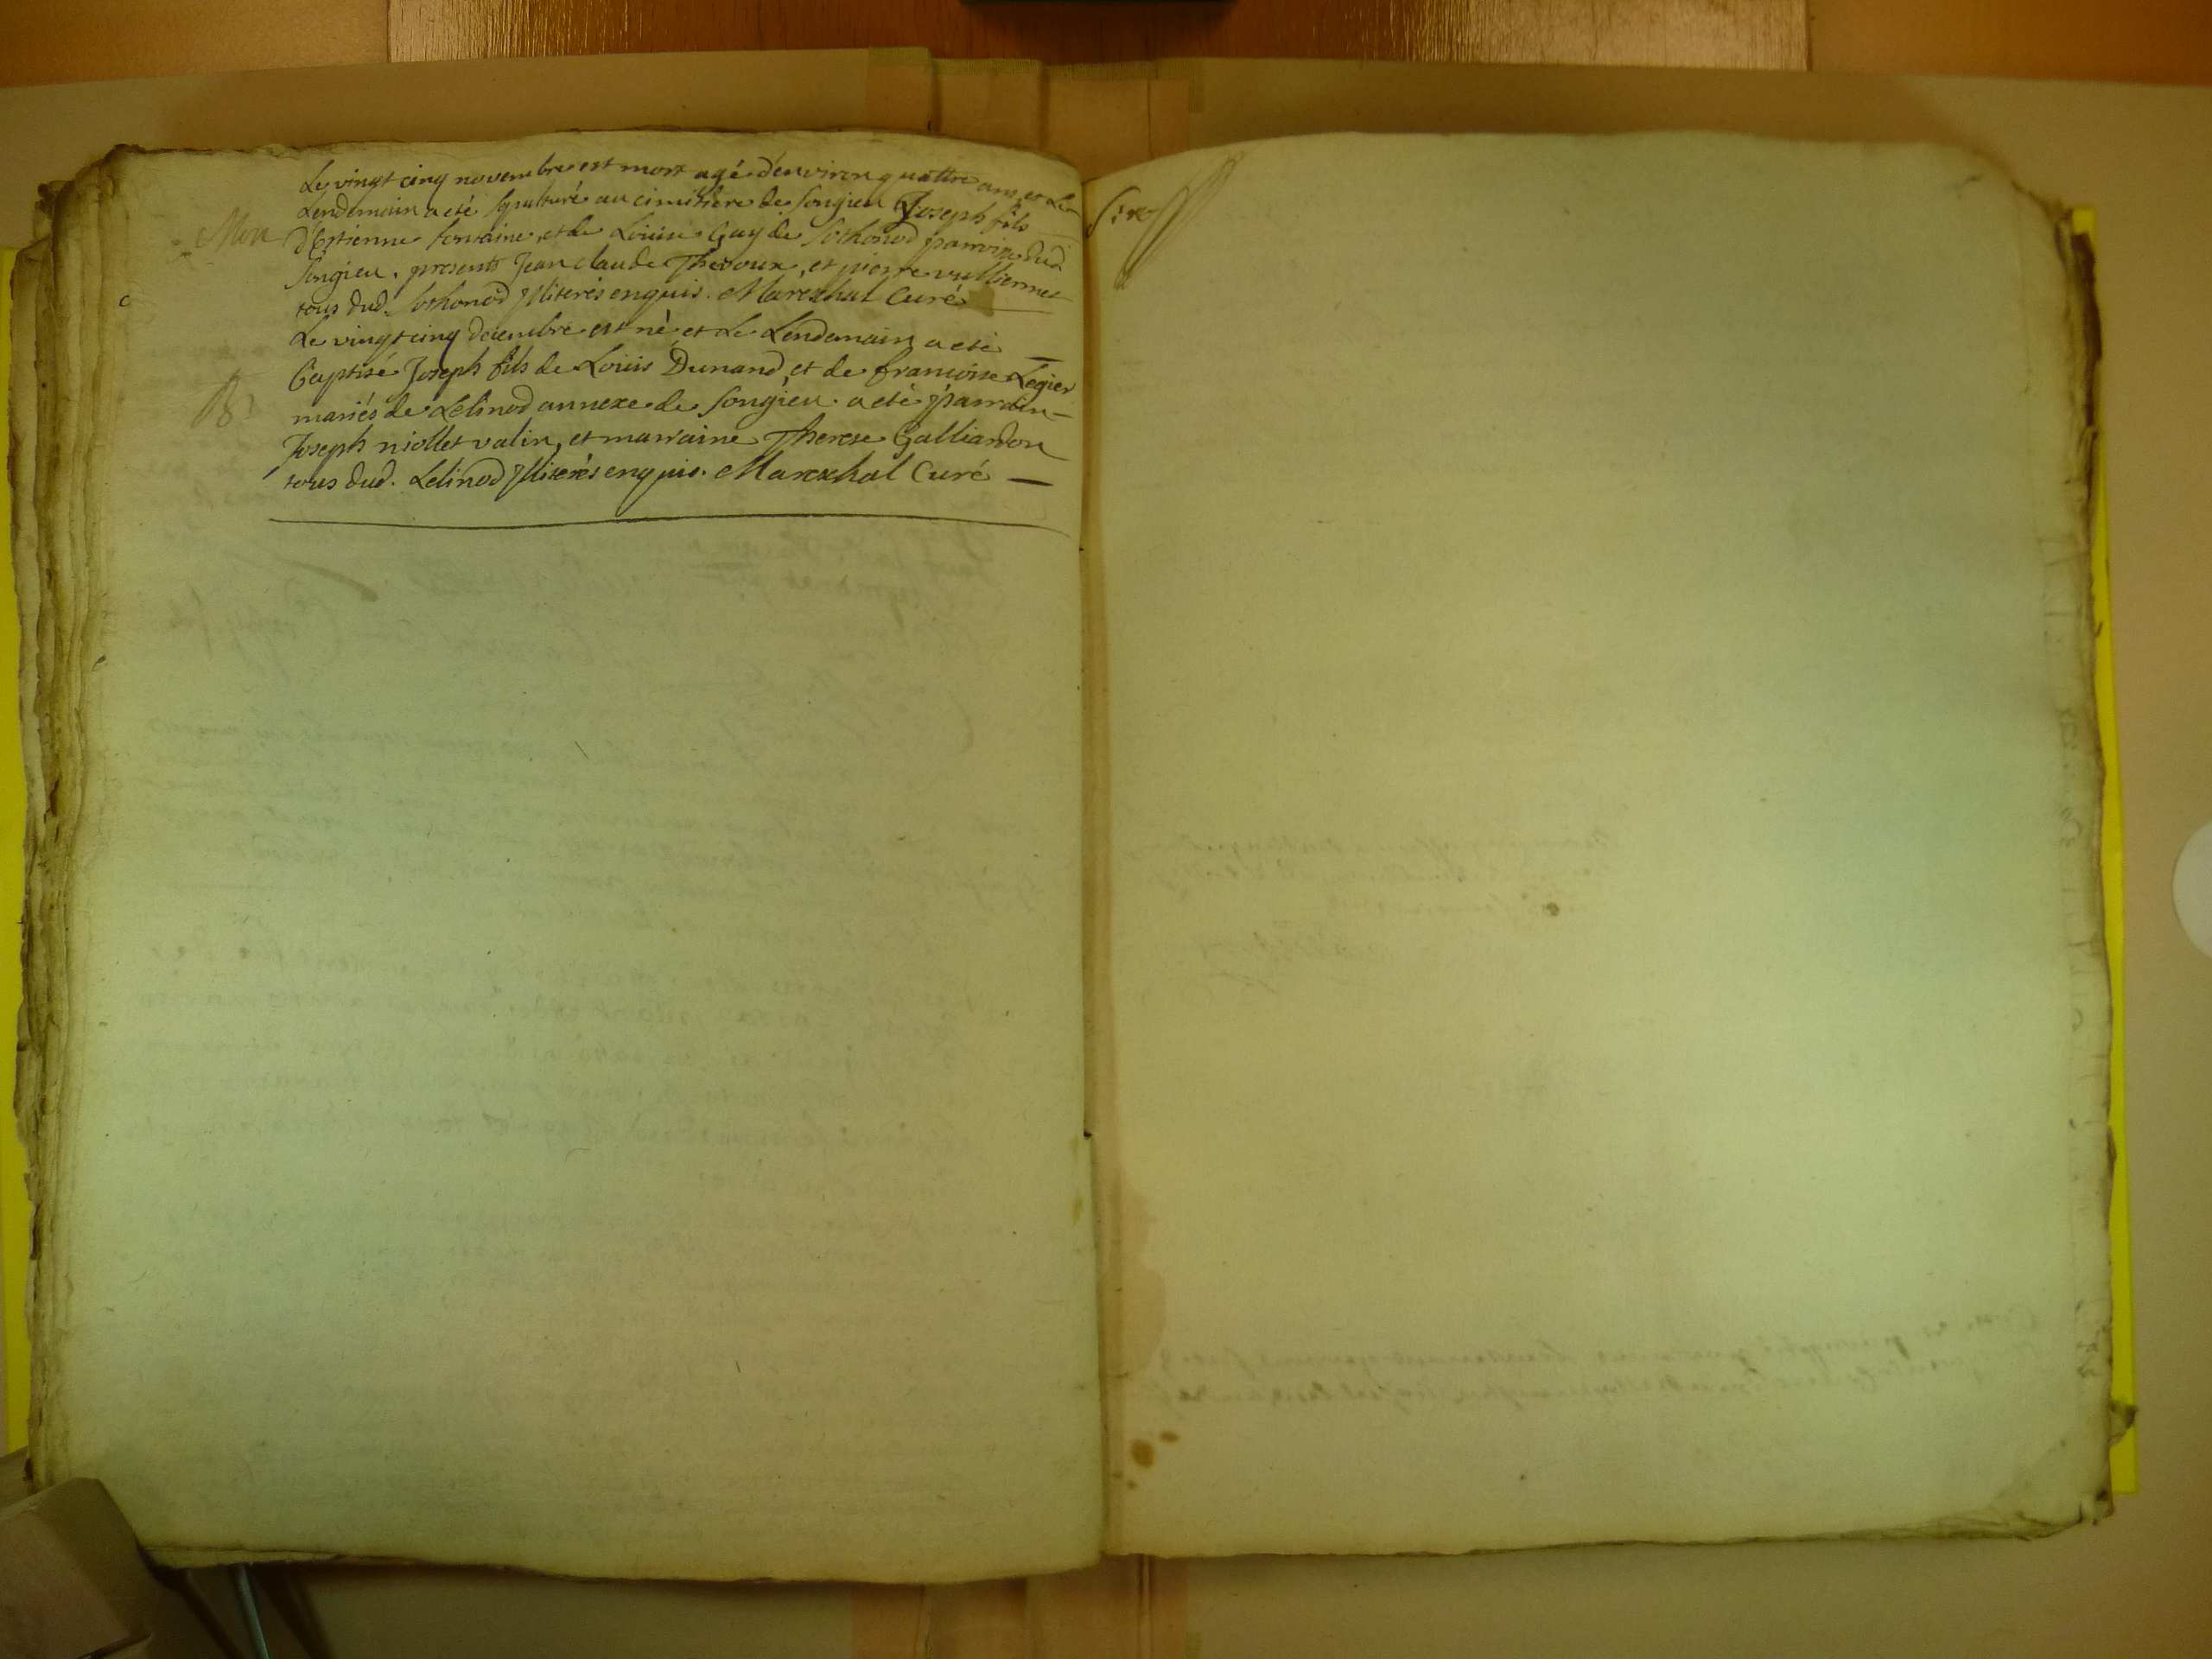 Le vingt cinq novembre est mort agé d'environ quattre ans, et Le
Lendemain a eté sepulturé au cimitiere de Songieu Joseph fils
Mor
d'Estienne fontaine, et de Louise Guy de Sothonod parroisse dud.
Songieu. presents Jean claude Thevoux, et pierre vulliermet
tous dud. Sothonod Illiterés enquis. Marexhal Curé
Le vingt cinq decembre est né et Le Lendemain a eté
baptisé Joseph fils de Loüis Dunand, et de francoise Legier
B
mariés de Lelinod annexe de Songieu. a eté parrain
Joseph niollet valin, et marraine Therese Galliardon
tous dud. Lelinod Illiterés enquis. Marexhal Curé